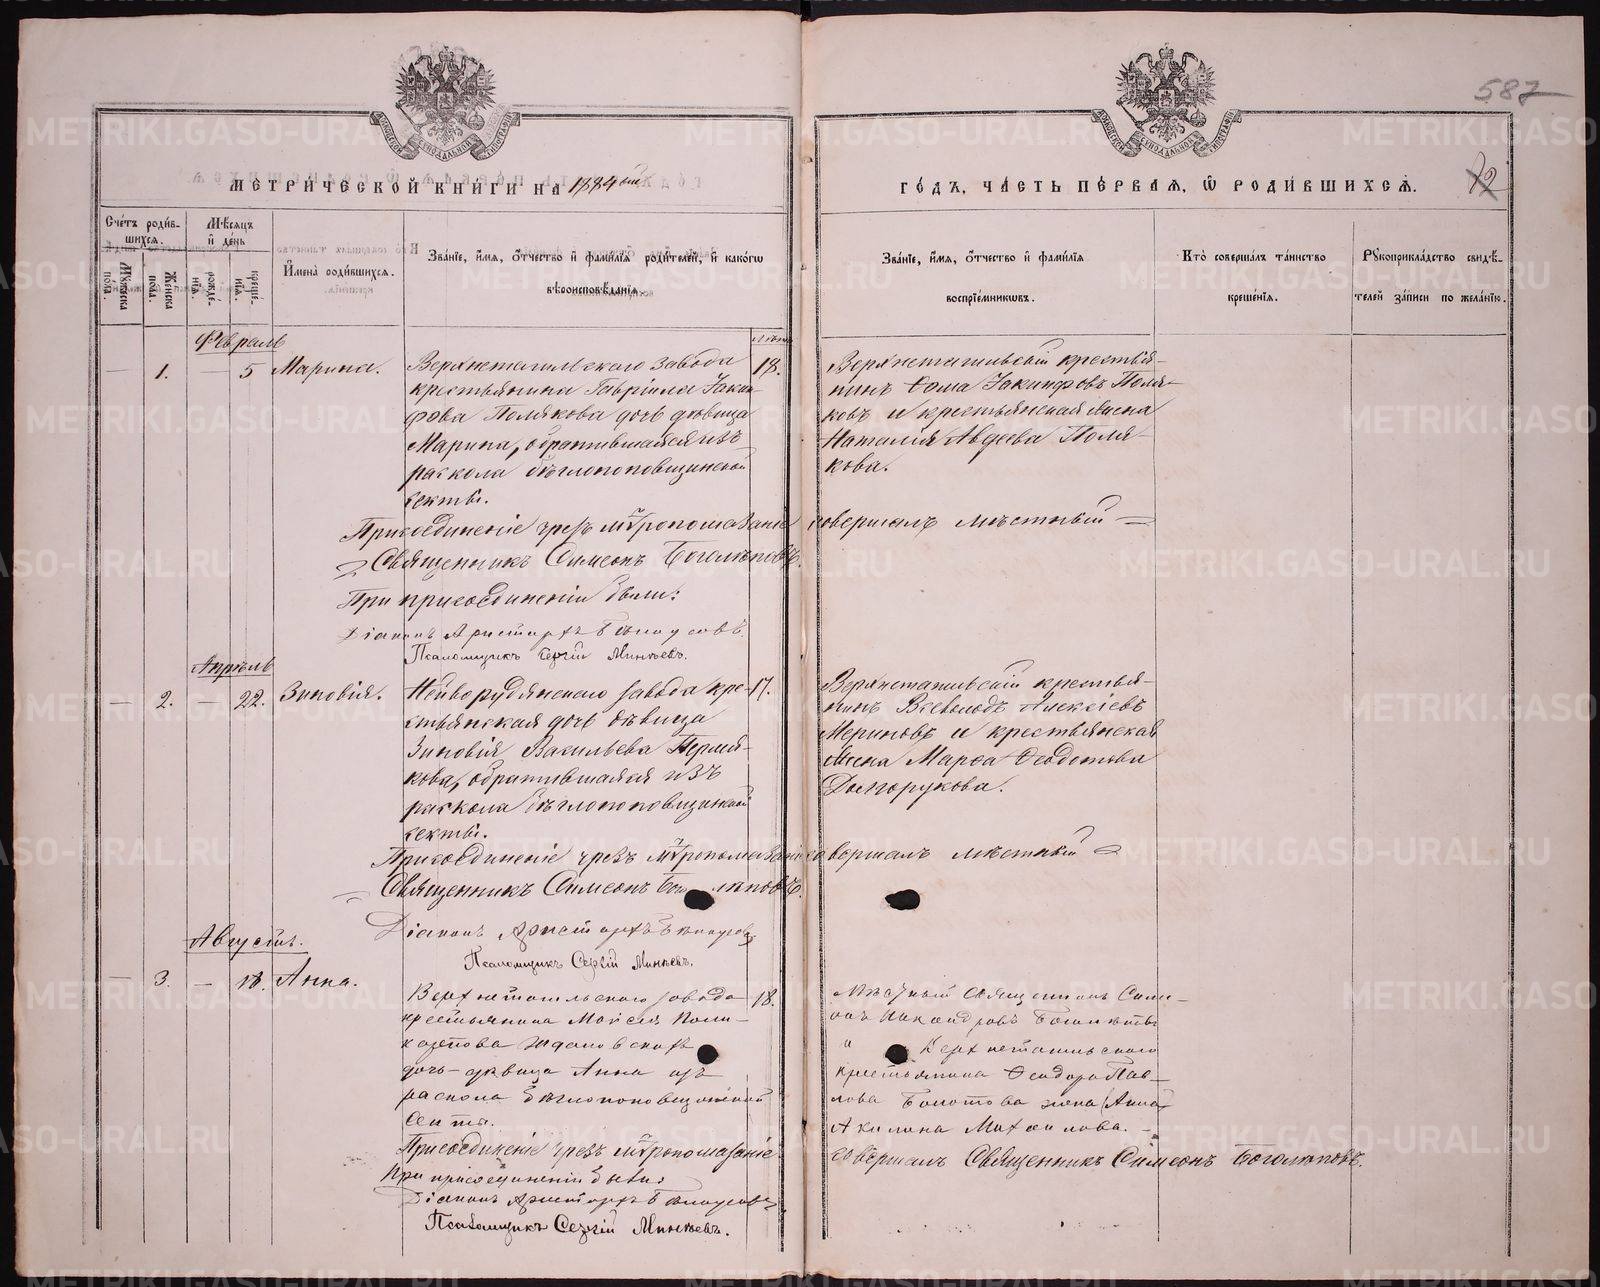 587
72
МЕТРИЧЕСКОЙ КНИГИ НА 1884 ый
ГОДЪ, ЧАСТЬ ПЕРВАЯ, Ѡ РОДИВШИХСЯ.
Счетъ родившихся.
Мужеска пола.
Женска пола.
Мѣсяцъ и день
рожденія.
крещенія.
Имена родившихся.
Званіе, имя, отчество и фамилія родителей, и какогѡ
вѣроисповѣданія.
Званіе, имя, отчество и фамилія
воспріемникѡвъ.
Кто совершалъ таинство
крещенія.
Рукоприкладство свидѣ-
телей записи по желанію.
Февраль
Лѣта
— 1. — 5 Марина.
Верхнетагильскаго завода
крестьянина Гавріила Іакин-
фова Полякова дочь дѣвица
Марина, обратившаяся изъ
раскола бѣглопоповщинской
секты.
18.
Верхнетагильскій крестья-
нинъ Ѳома Іакинфовъ Поля-
ковъ и крестьянская жена
Наталія Авдеева Поля-
кова.
Присоединеніе чрезъ мѵропомазаніе совершалъ мѣстный
Священникъ Симеонъ Боголѣповъ.
При присоединеніи были:
Діаконъ Аристархъ Бѣлоусовъ.
Псаломщикъ Сергій Минѣевъ.
Апрѣль
— 2. — 22. Зиновія.
Нейворудянскаго завода кре-
стьянская дочь дѣвица
Зиновія Васильева Пермя-
кова, обратившаяся изъ
раскола бѣглопоповщинской
секты.
17.
Верхнетагильскій крестья-
нинъ Всеволодъ Алексіевъ
Мериновъ и крестьянская
жена Марѳа Ѳеодотова
Долгорукова.
Присоединеніе чрезъ мѵропомазаніе совершалъ мѣстный
Священникъ Симеонъ Боголѣповъ.
Діаконъ Аристархъ Бѣлоусовъ
Псаломщикъ Сергій Минѣевъ.
Августъ.
— 3. — 18. Анна.
Верхнетагильскаго завода
крестьянина Моисея Поли-
карпова
дочь дѣвица Анна изъ
раскола бѣглопоповщинской
секты.
18.
Мѣстный Священникъ Симе-
онъ Никандровъ Боголѣповъ
и Верхнетагильскаго
крестьянина Ѳеодора Пав-
лова Болотова жена (Анна)
Акилина Михаилова.
Присоединеніе чрезъ мѵропомазаніе совершалъ Священникъ Симеонъ Боголѣповъ.
При присоединеніи были:
Діаконъ Аристархъ Бѣлоусовъ
Псаломщикъ Сергій Минѣевъ.
METRIKI.GASO-URAL.RU